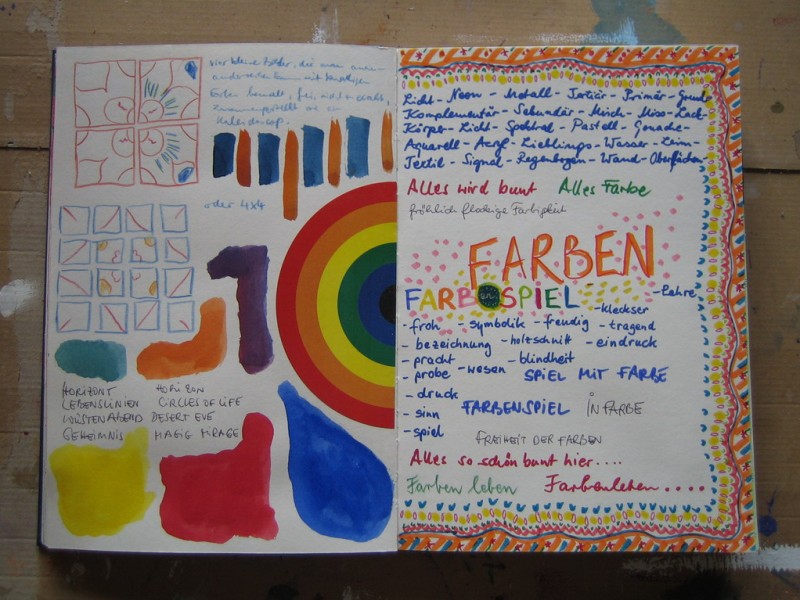 Vier kleine Bilder, die man anein-
kann mit
zusammengestellt wie ein
Kaleidoskop.
oder 4x4
HORIZONT HORIZON
LEBENSLINIEN CIRCLES OF LIFE
WÜSTENABEND DESERT EVE
GEHEIMNIS MAGIC MIRAGE
Licht - Neon - Metall - Tertiär - Primär -
Komplementär - Sekundär - Misch - Miss - Lack -
Körper - Licht - Spektral - Pastell - Gouache -
Aquarell - Acryl - Lieblings - Wasser - Leim -
Textil - Signal - Regenbogen - Wand - Oberflächen -
Alles wird bunt Alles Farbe
fröhlich flockige Farbigkeit
FARBEN
FARB SPIEL
- Lehre
- kleckser
- froh - symbolik - freudig - tragend
- bezeichnung - holzschnitt - eindruck
- pracht - blindheit
- probe - wesen SPIEL MIT FARBE
- druck
- sinn FARBENSPIEL IN FARBE
- spiel
FREIHEIT DER FARBEN
Alles so schön bunt hier....
Farben leben Farbenleben....